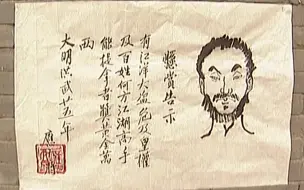 懸賞告示
有江洋大盜危及皇權
及百姓何方江湖高手
能提拿者賞黃金萬
兩
大明洪武廿五年